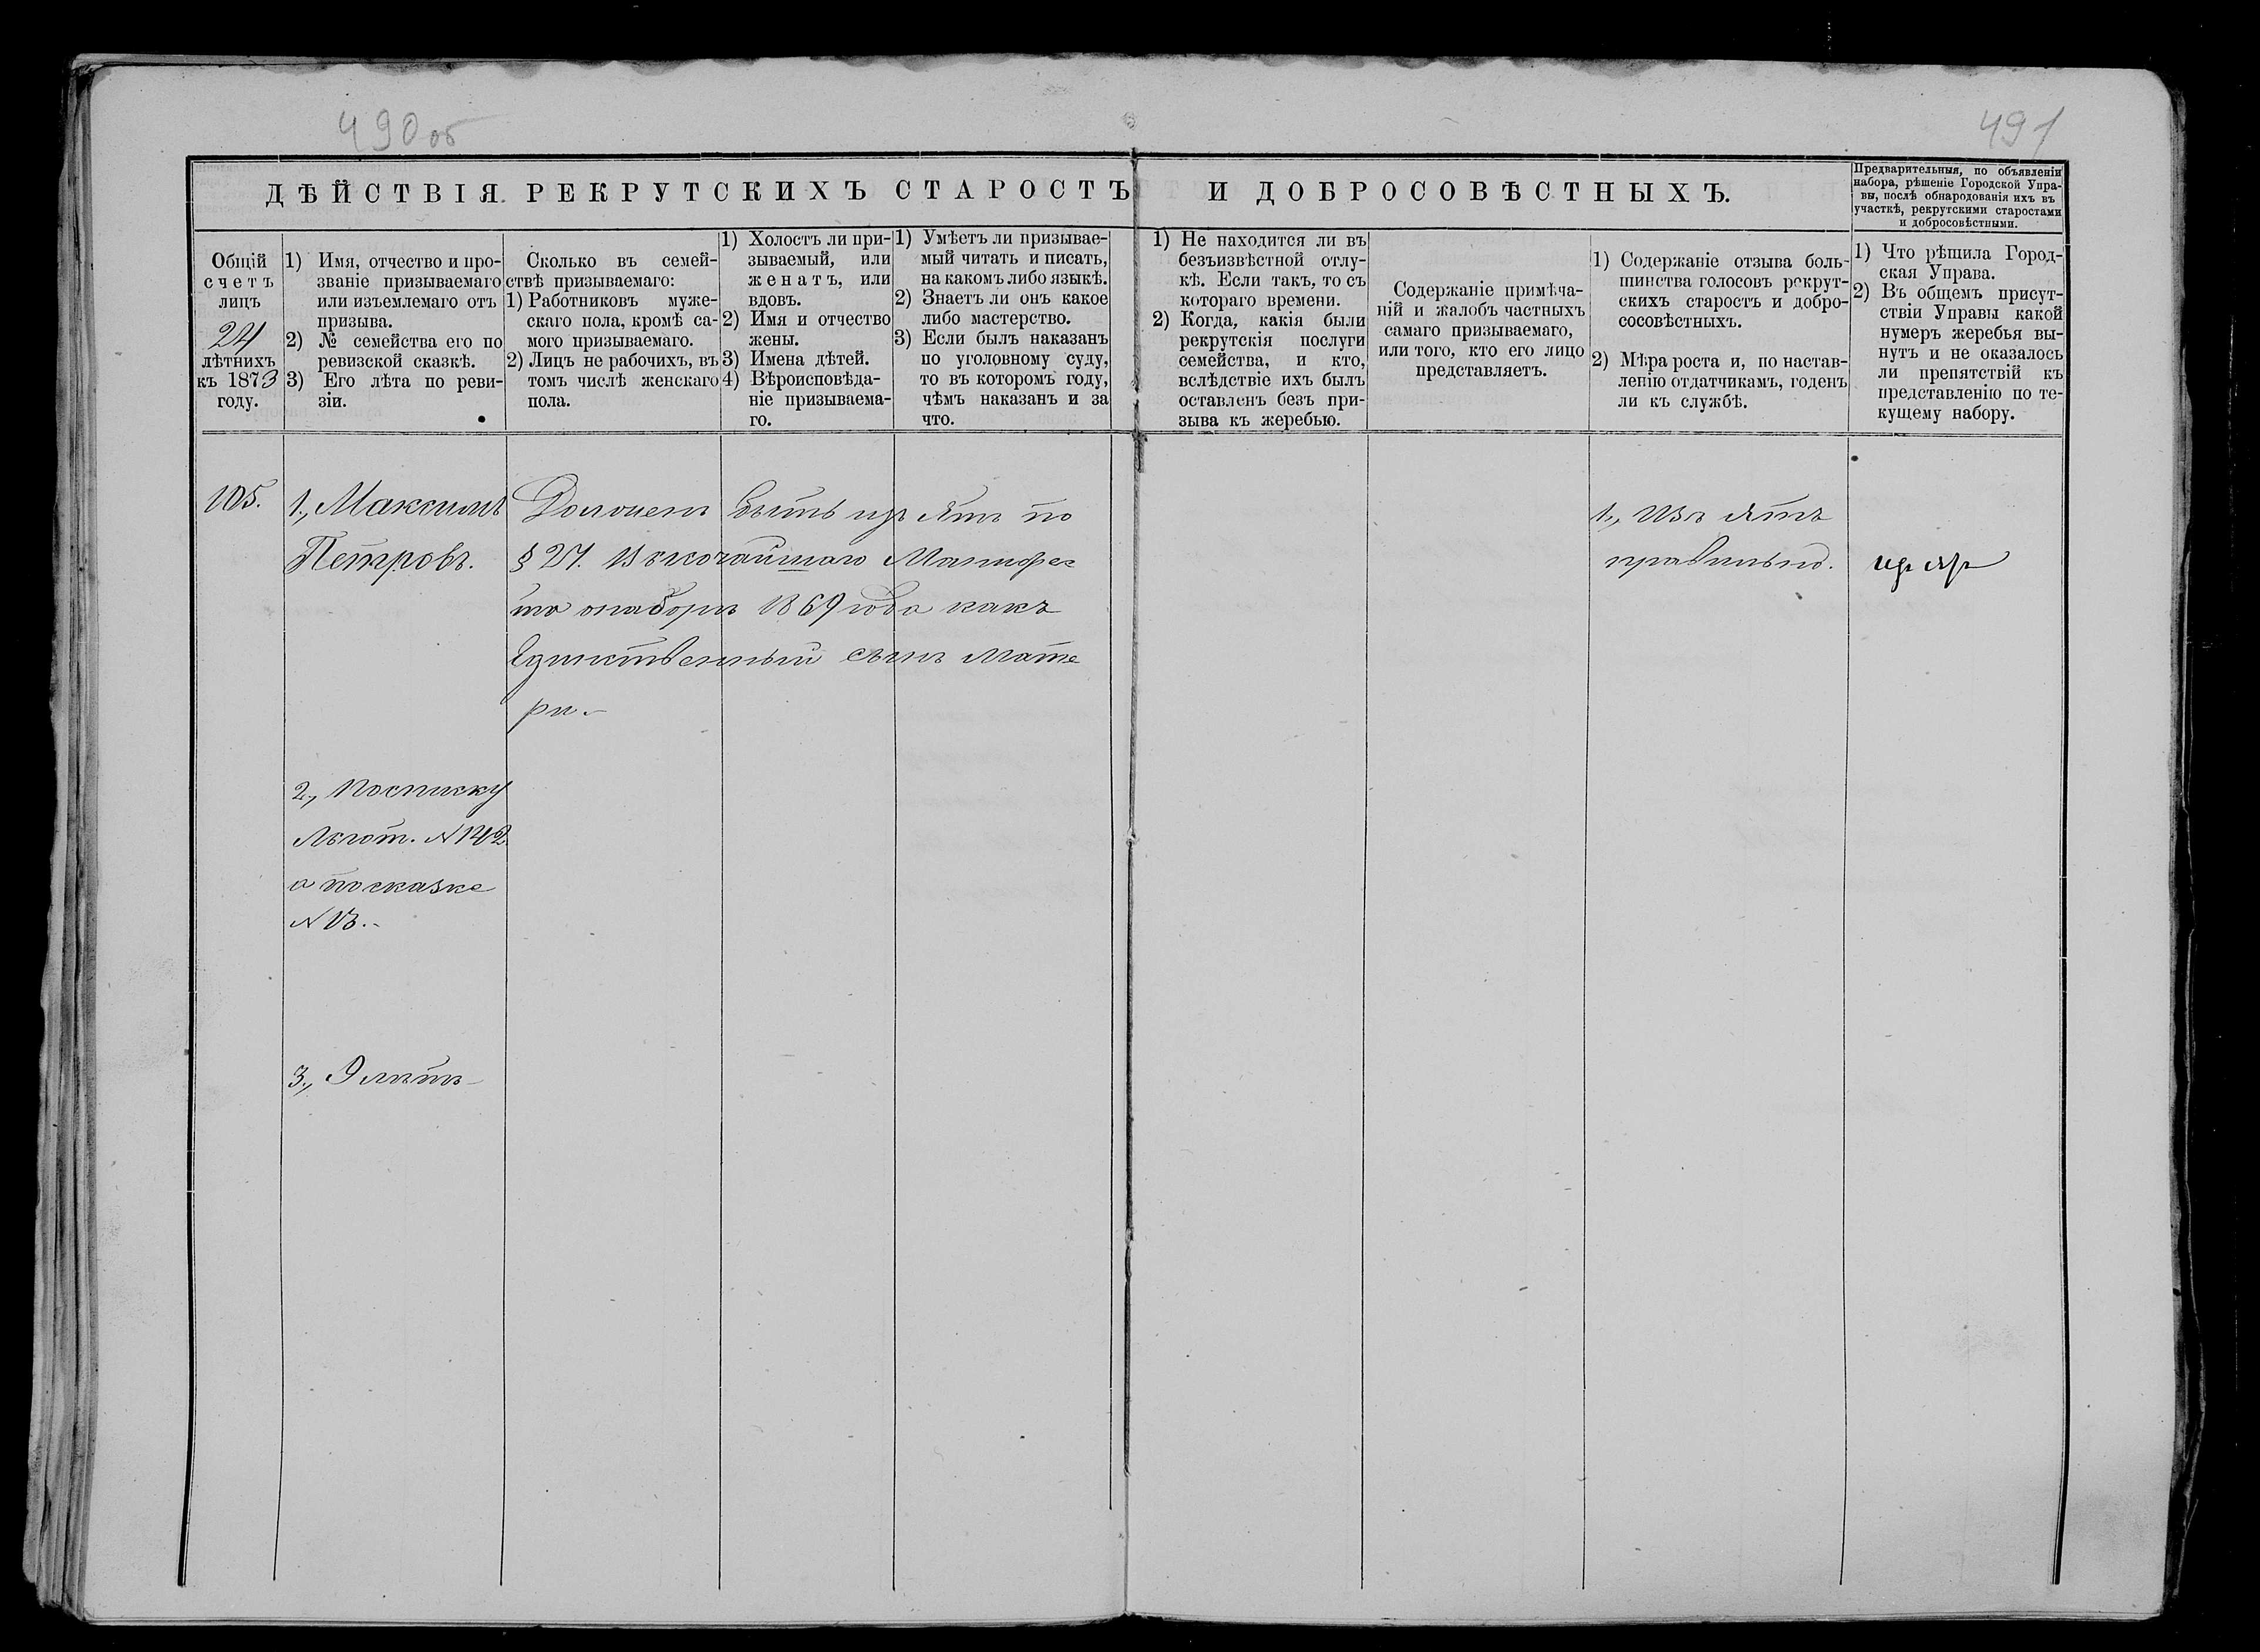 490об
491
ДѢЙСТВІЯ РЕКРУТСКИХЪ СТАРОСТЪ И ДОБРОСОВѢСТНЫХЪ.
Предварительныя, по объявленіи
набора, рѣшеніе Городской Упра-
вы, послѣ обнародованія ихъ въ
участкѣ, рекрутскими старостами
и добросовѣстными.
Общій
счетъ
лицъ
24
лѣтнихъ
къ 1873
году.
1) Имя, отчество и про-
званіе призываемаго
или изъемлемаго отъ
призыва.
2) № семейства его по
ревизской сказкѣ.
3) Его лѣта по реви-
зіи.
Сколько въ семей-
ствѣ призываемаго:
1) Работниковъ муже-
скаго пола, кромѣ са-
мого призываемаго.
2) Лицъ не рабочихъ, въ
томъ числѣ женскаго
пола.
1) Холостъ ли при-
зываемый, или
женатъ, или
вдовъ.
2) Имя и отчество
жены.
3) Имена дѣтей.
4) Вѣроисповѣда-
ніе призываема-
го.
1) Умѣетъ ли призывае-
мый читать и писать,
на какомъ либо языкѣ.
2) Знаетъ ли онъ какое
либо мастерство.
3) Если былъ наказанъ
по уголовному суду,
то въ которомъ году,
чѣмъ наказанъ и за
что.
1) Не находится ли въ
безъизвѣстной отлу-
кѣ. Если такъ, то съ
котораго времени.
2) Когда, какія были
рекрутскія послуги
семейства, и кто,
вслѣдствіе ихъ былъ
оставленъ безъ при-
зыва къ жеребью.
Содержаніе примѣча-
ній и жалобъ частныхъ
самаго призываемаго,
или того, кто его лицо
представляетъ.
1) Содержаніе отзыва боль-
шинства голосовъ рекрут-
скихъ старостъ и добро-
сосовѣстныхъ.
2) Мѣра роста и, по настав-
ленію отдатчикамъ, годенъ
ли къ службѣ.
1) Что рѣшила Город-
ская Управа.
2) Въ общемъ присут-
ствіи Управы какой
нумеръ жеребья вы-
нутъ и не оказалось
ли препятствій къ
представленію по те-
кущему набору.
105.
1., Максимъ
Петровъ.
Должень быть изъ ятъ по
§ 27. Высочайшаго Манифес
та онаборѣ 1869 года какъ
Единственный сынъ мате
ри.-
2., Посписку
Льгот. N 142
а посказке
N 13.-
3., 9 лѣтъ
1., Изъ ятъ
правильно.